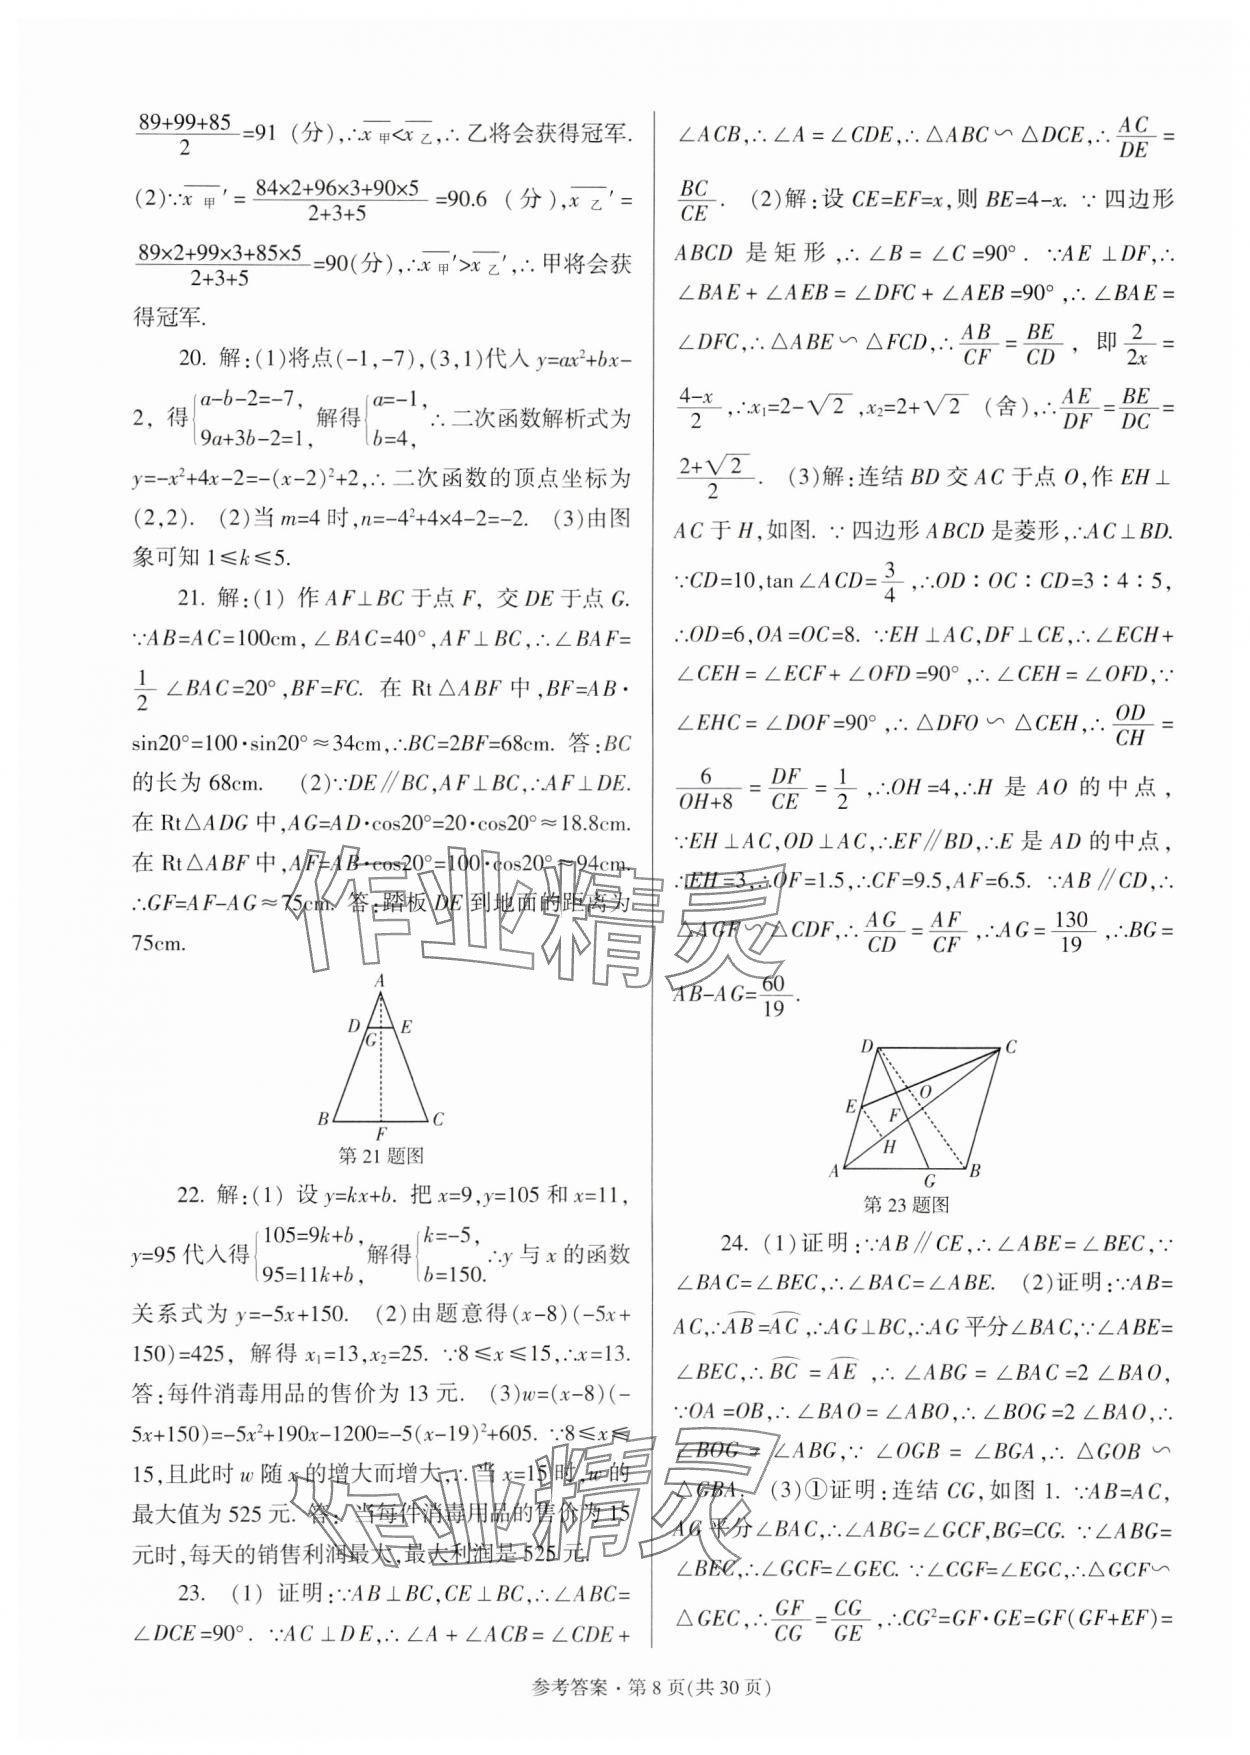 89+99+85/2=91 (分),∴x甲<x乙,∴乙将会获得冠军.
(2)∵x甲′=84×2+96×3+90×5/2+3+5=90.6 (分),x乙′=
89×2+99×3+85×5/2+3+5=90(分),∴x甲′>x乙′,∴甲将会获
得冠军.
20. 解:(1)将点(-1,-7),(3,1)代入 y=ax²+bx-
2, 得{a-b-2=-7, 9a+3b-2=1, 解得{a=-1, b=4, ∴二次函数解析式为
y=-x²+4x-2=-(x-2)²+2,∴二次函数的顶点坐标为
(2,2). (2)当 m=4 时,n=-4²+4×4-2=-2. (3)由图
象可知 1≤k≤5.
21. 解:(1) 作 AF⊥BC 于点 F, 交 DE 于点 G.
∵AB=AC=100cm,∠BAC=40°,AF⊥BC,∴∠BAF=
1/2∠BAC=20°,BF=FC. 在 Rt△ABF 中,BF=AB·
sin20°=100·sin20°≈34cm,∴BC=2BF=68cm. 答:BC
的长为 68cm. (2)∵DE∥BC,AF⊥BC,∴AF⊥DE.
在 Rt△ADG 中,AG=AD·cos20°=20·cos20°≈18.8cm.
在 Rt△ABF 中,AF=AB·cos20°=100·cos20°≈94cm.
∴GF=AF-AG≈75cm. 答:踏板 DE 到地面的距离为
75cm.
A
D G E
B F C
第 21 题图
22. 解:(1) 设 y=kx+b. 把 x=9,y=105 和 x=11,
y=95 代入得{105=9k+b, 95=11k+b, 解得{k=-5, b=150. ∴y 与 x 的函数
关系式为 y=-5x+150. (2)由题意得(x-8)(-5x+
150)=425, 解得 x₁=13,x₂=25. ∵8≤x≤15,∴x=13.
答:每件消毒用品的售价为 13 元. (3)w=(x-8)(-
5x+150)=-5x²+190x-1200=-5(x-19)²+605. ∵8≤x≤
15,且此时 w 随 x 的增大而增大,∴当 x=15 时,w 的
最大值为 525 元. 答: 当每件消毒用品的售价为 15
元时,每天的销售利润最大,最大利润是 525 元.
23. (1) 证明:∵AB⊥BC,CE⊥BC,∴∠ABC=
∠DCE=90°. ∵AC⊥DE,∴∠A+∠ACB=∠CDE+
∠ACB,∴∠A=∠CDE,∴△ABC∽△DCE,∴AC/DE=
BC/CE. (2)解:设 CE=EF=x,则 BE=4-x. ∵四边形
ABCD 是矩形,∴∠B=∠C=90°. ∵AE⊥DF,∴
∠BAE+∠AEB=∠DFC+∠AEB=90°,∴∠BAE=
∠DFC,∴△ABE∽△FCD,∴AB/CF=BE/CD, 即2/2x=
4-x/2,∴x₁=2-√2,x₂=2+√2 (舍),∴AE/DF=BE/DC=
2+√2/2. (3)解:连结 BD 交 AC 于点 O,作 EH⊥
AC 于 H,如图. ∵四边形 ABCD 是菱形,∴AC⊥BD.
∵CD=10,tan∠ACD=3/4,∴OD∶OC∶CD=3∶4∶5,
∴OD=6,OA=OC=8. ∵EH⊥AC,DF⊥CE,∴∠ECH+
∠CEH=∠ECF+∠OFD=90°,∴∠CEH=∠OFD,∵
∠EHC=∠DOF=90°,∴△DFO∽△CEH,∴OD/CH=
6/OH+8=DF/CE=1/2,∴OH=4,∴H 是 AO 的中点,
∵EH⊥AC,OD⊥AC,∴EF∥BD,∴E 是 AD 的中点,
∴EH=3,∴OF=1.5,∴CF=9.5,AF=6.5. ∵AB∥CD,∴
△AGF∽△CDF,∴AG/CD=AF/CF,∴AG=130/19,∴BG=
AB-AG=60/19.
D C
E O F
H
A G B
第 23 题图
24. (1)证明:∵AB∥CE,∴∠ABE=∠BEC,∵
∠BAC=∠BEC,∴∠BAC=∠ABE. (2)证明:∵AB=
AC,∴AB=AC,∴AG⊥BC,∴AG 平分∠BAC,∵∠ABE=
∠BEC,∴BC=AE,∴∠ABG=∠BAC=2∠BAO,
∵OA=OB,∴∠BAO=∠ABO,∴∠BOG=2∠BAO,∴
∠BOG=∠ABG,∵∠OGB=∠BGA,∴△GOB∽
△GBA. (3)①证明:连结 CG,如图 1. ∵AB=AC,
AG 平分∠BAC,∴∠ABG=∠GCF,BG=CG. ∵∠ABG=
∠BEC,∴∠GCF=∠GEC. ∵∠CGF=∠EGC,∴△GCF∽
△GEC,∴GF/CG=CG/GE,∴CG²=GF·GE=GF(GF+EF)=
参考答案·第 8 页(共 30 页)
作业精灵
作业精灵